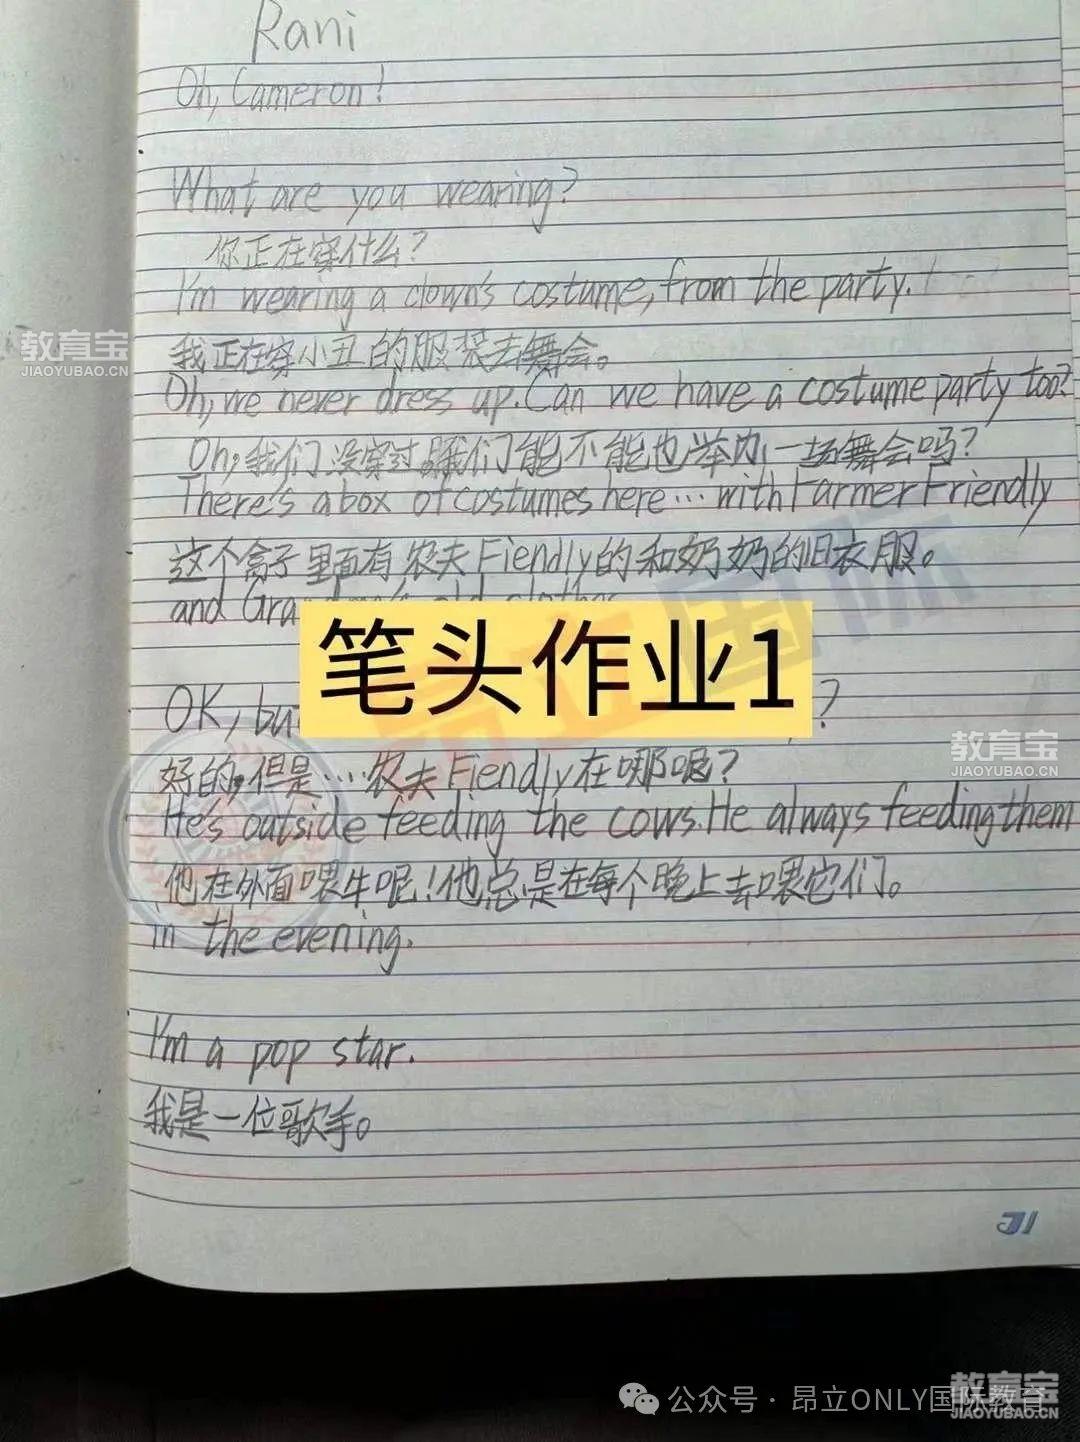 Rani
Oh, Cameron!
What are you wearing?
你正在穿什么？
I'm wearing a clown's costume, from the party.
教育宝
JIAOYUBAO.CN
我正在穿小丑的服装去舞会。
Oh, we never dress up. Can we have a costume party too?
Oh，我们没穿过，我们能不能也举办一场舞会吗？
There's a box of costumes here... with Farmer Friendly
这个盒子里面有农夫Fiendly的和奶奶的旧衣服。
and
笔头作业1
OK,
?
教育宝
JIAOYUBAO.CN
好的，但是…农夫Fiendly在哪呢？
He's outside feeding the cows. He always feeding them
他在外面喂牛呢！他总是在每个晚上去喂它们。
in the evening.
I'm a pop star.
我是一位歌手。
31
公众号·昂立ONLY国际教育
教育宝
JIAOYUBAO.CN